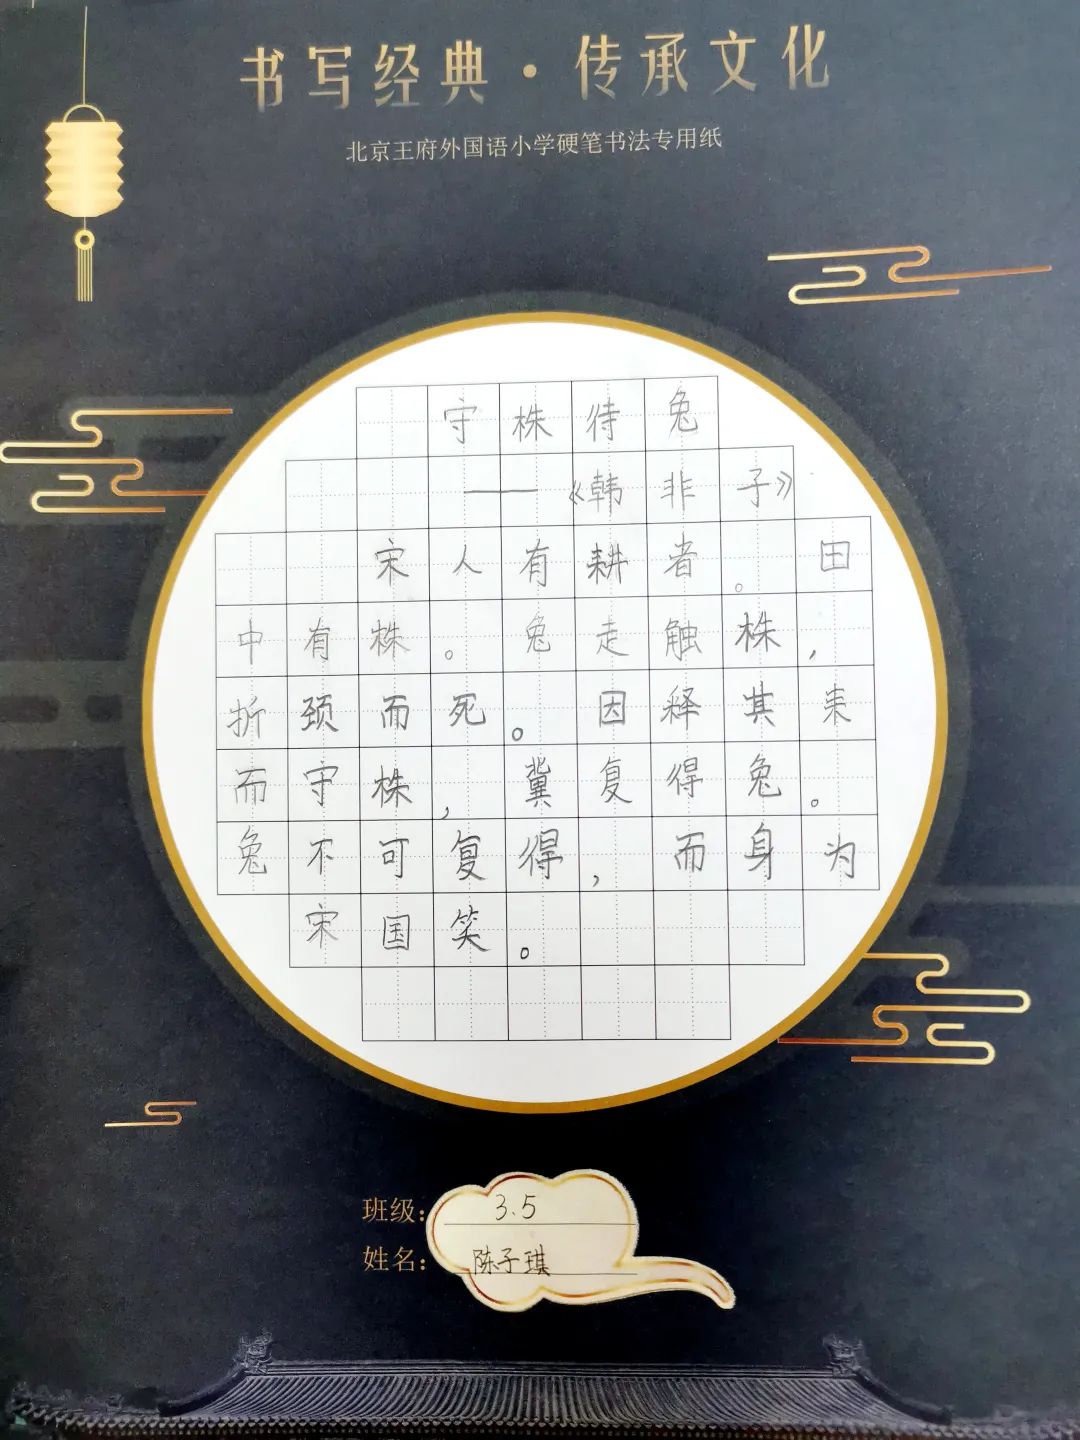 书写经典·传承文化
北京王府外国语小学硬笔书法专用纸
守株待兔
——《韩非子》
宋人有耕者。田
中有株。兔走触株，
折颈而死。因释其耒
而守株，冀复得兔。
兔不可复得，而身为
宋国笑。
班级：3.5
姓名：陈子琪